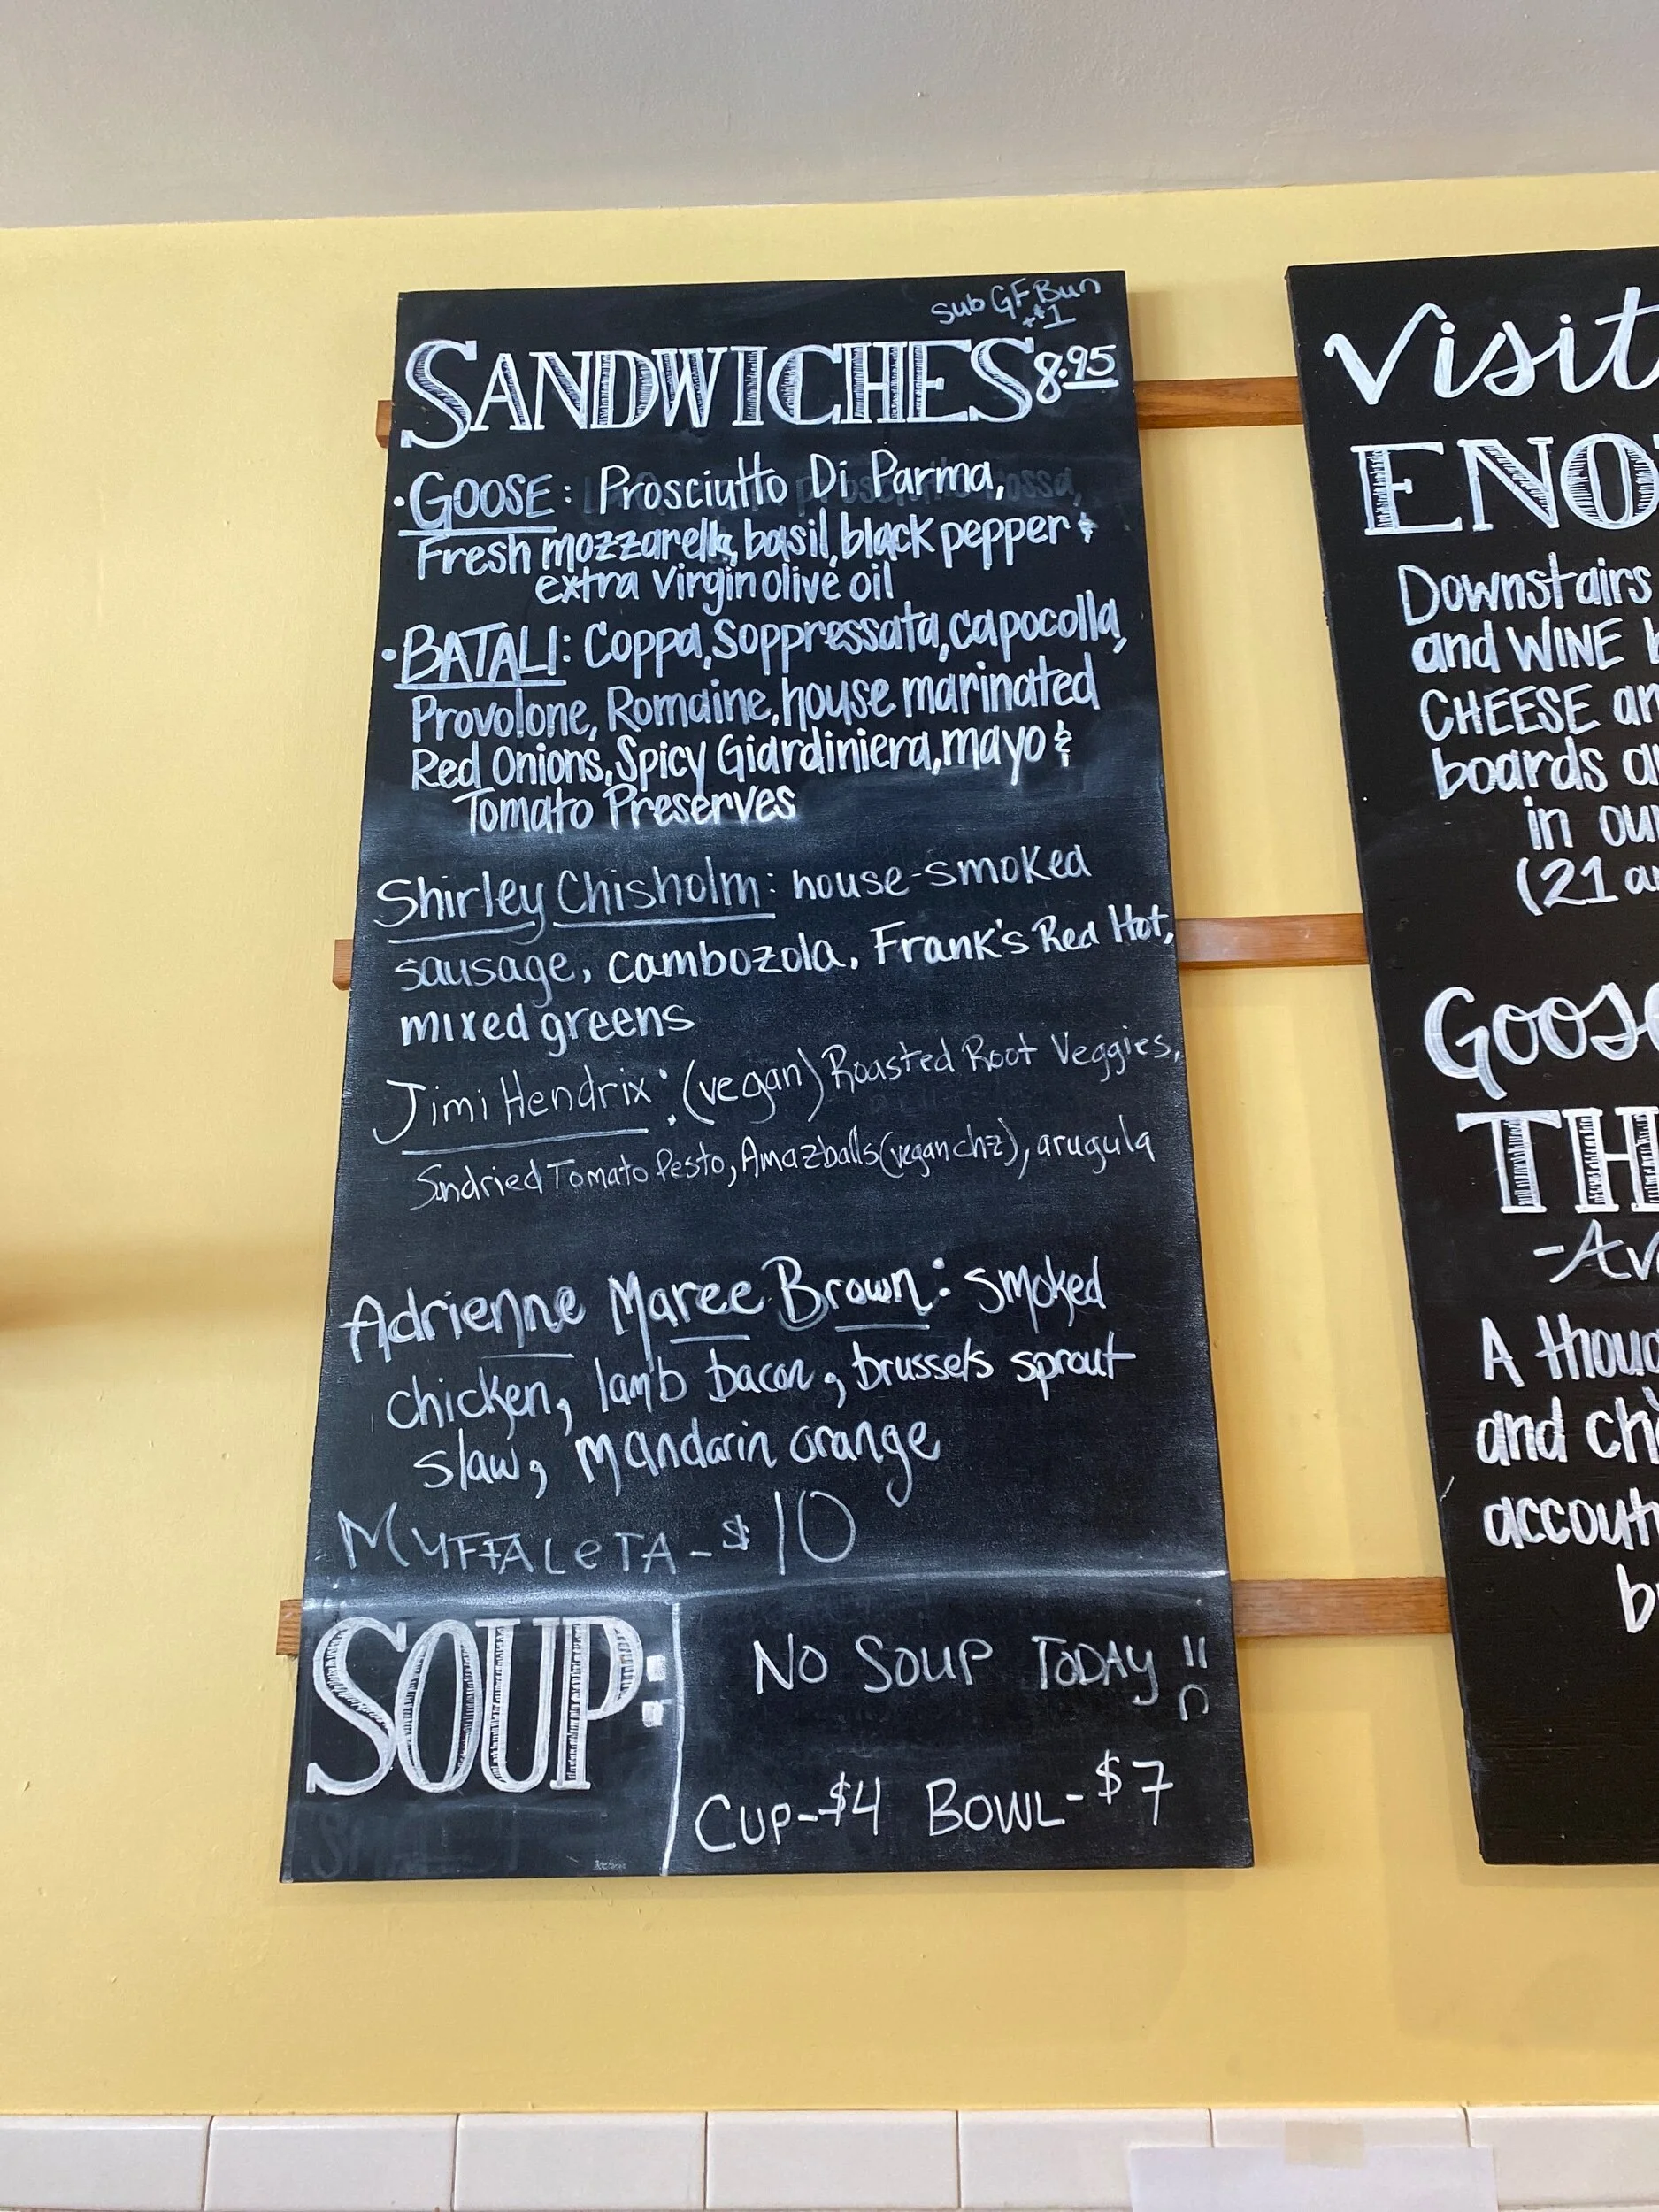 Sub GF Bun
+$1
SANDWICHES 8.95
• GOOSE: Prosciutto Di Parma,
Fresh mozzarella, basil, black pepper &
extra virgin olive oil
• BATALI: Coppa, Soppressata, capocolla,
Provolone, Romaine, house marinated
Red Onions, Spicy Giardiniera, mayo &
Tomato Preserves
Shirley Chisholm: house-smoked
sausage, cambozola, Frank's Red Hot,
mixed greens
Jimi Hendrix: (vegan) Roasted Root Veggies,
Sundried Tomato Pesto, Amazballs (vegan chz), arugula
Adrienne Maree Brown: smoked
chicken, lamb bacon, brussels sprout
slaw, mandarin orange
MUFFALETA - $10
SOUP:
NO SOUP TODAY !!
CUP-$4 BOWL-$7
Visit
ENO
Downstairs
and WINE
CHEESE an
boards a
in ou
(21 a
Goose
TH
-Av
A thoug
and ch
accout
b